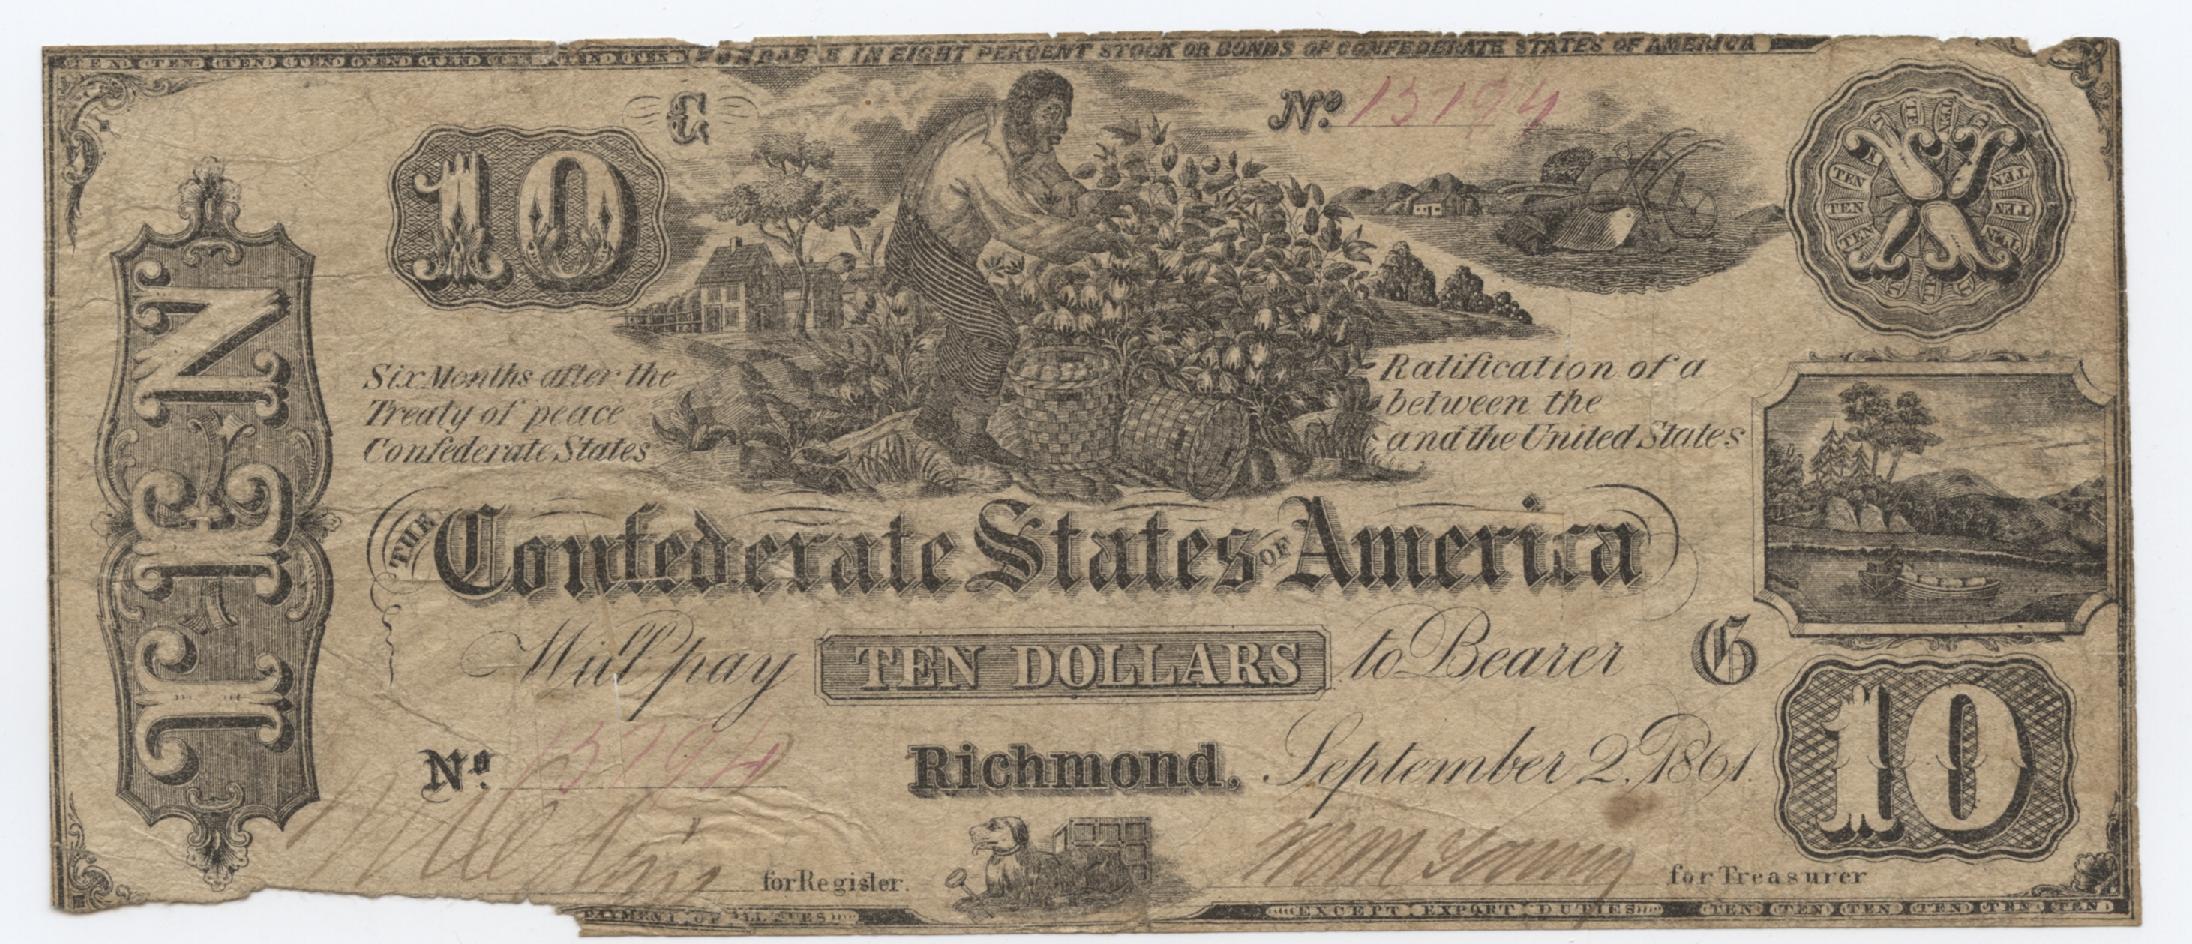 TEN TEN TEN TEN TEN TEN TEN TEN FUNDABLE IN EIGHT PERCENT STOCK OR BONDS OF CONFEDERATE STATES OF AMERICA
C
Nº 15794
10
X
TEN
Six Months after the Ratification of a
Treaty of peace between the
Confederate States and the United States
THE Confederate States OF America
Will pay TEN DOLLARS to Bearer G
Nº 15794 Richmond, September 2, 1861.
10
for Register. for Treasurer
PAYMENT OF ALL DUES EXCEPT EXPORT DUTIES TEN TEN TEN TEN TEN TEN